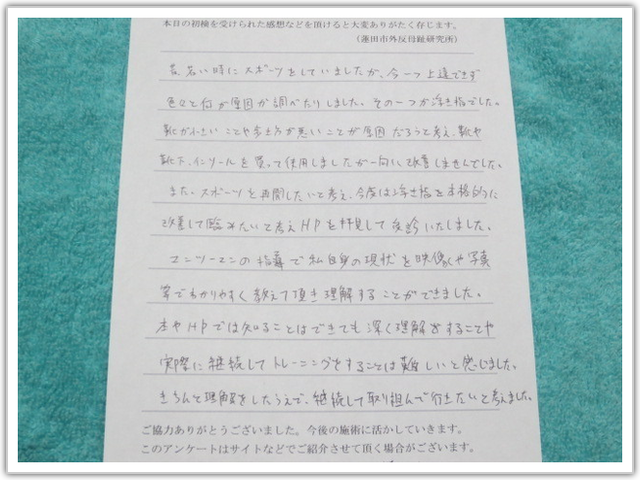 本日の初検を受けられた感想などを頂けると大変ありがたく存じます。
（蓮田市外反母趾研究所）
昔、若い時にスポーツをしていましたが、今一つ上達できず
色々と何が原因か調べたりしました。その一つが浮き指でした。
靴が小さいことや歩き方が悪いことが原因だろうと考え、靴や
靴下、インソールを買って使用しましたが一向に改善しませんでした。
また、スポーツを再開したいと考え、今度は浮き指を本格的に
改善して臨みたいと考えHPを拝見して受診いたしました。
マンツーマンの指導で私自身の現状を映像や写真
等でわかりやすく教えて頂き理解することができました。
本やHPでは知ることはできても深く理解をすることや
実際に継続してトレーニングをすることは難しいと感じました。
きちんと理解をしたうえで、継続して取り組んで行きたいと考えました。
ご協力ありがとうございました。今後の施術に活かしていきます。
このアンケートはサイトなどでご紹介させて頂く場合がございます。